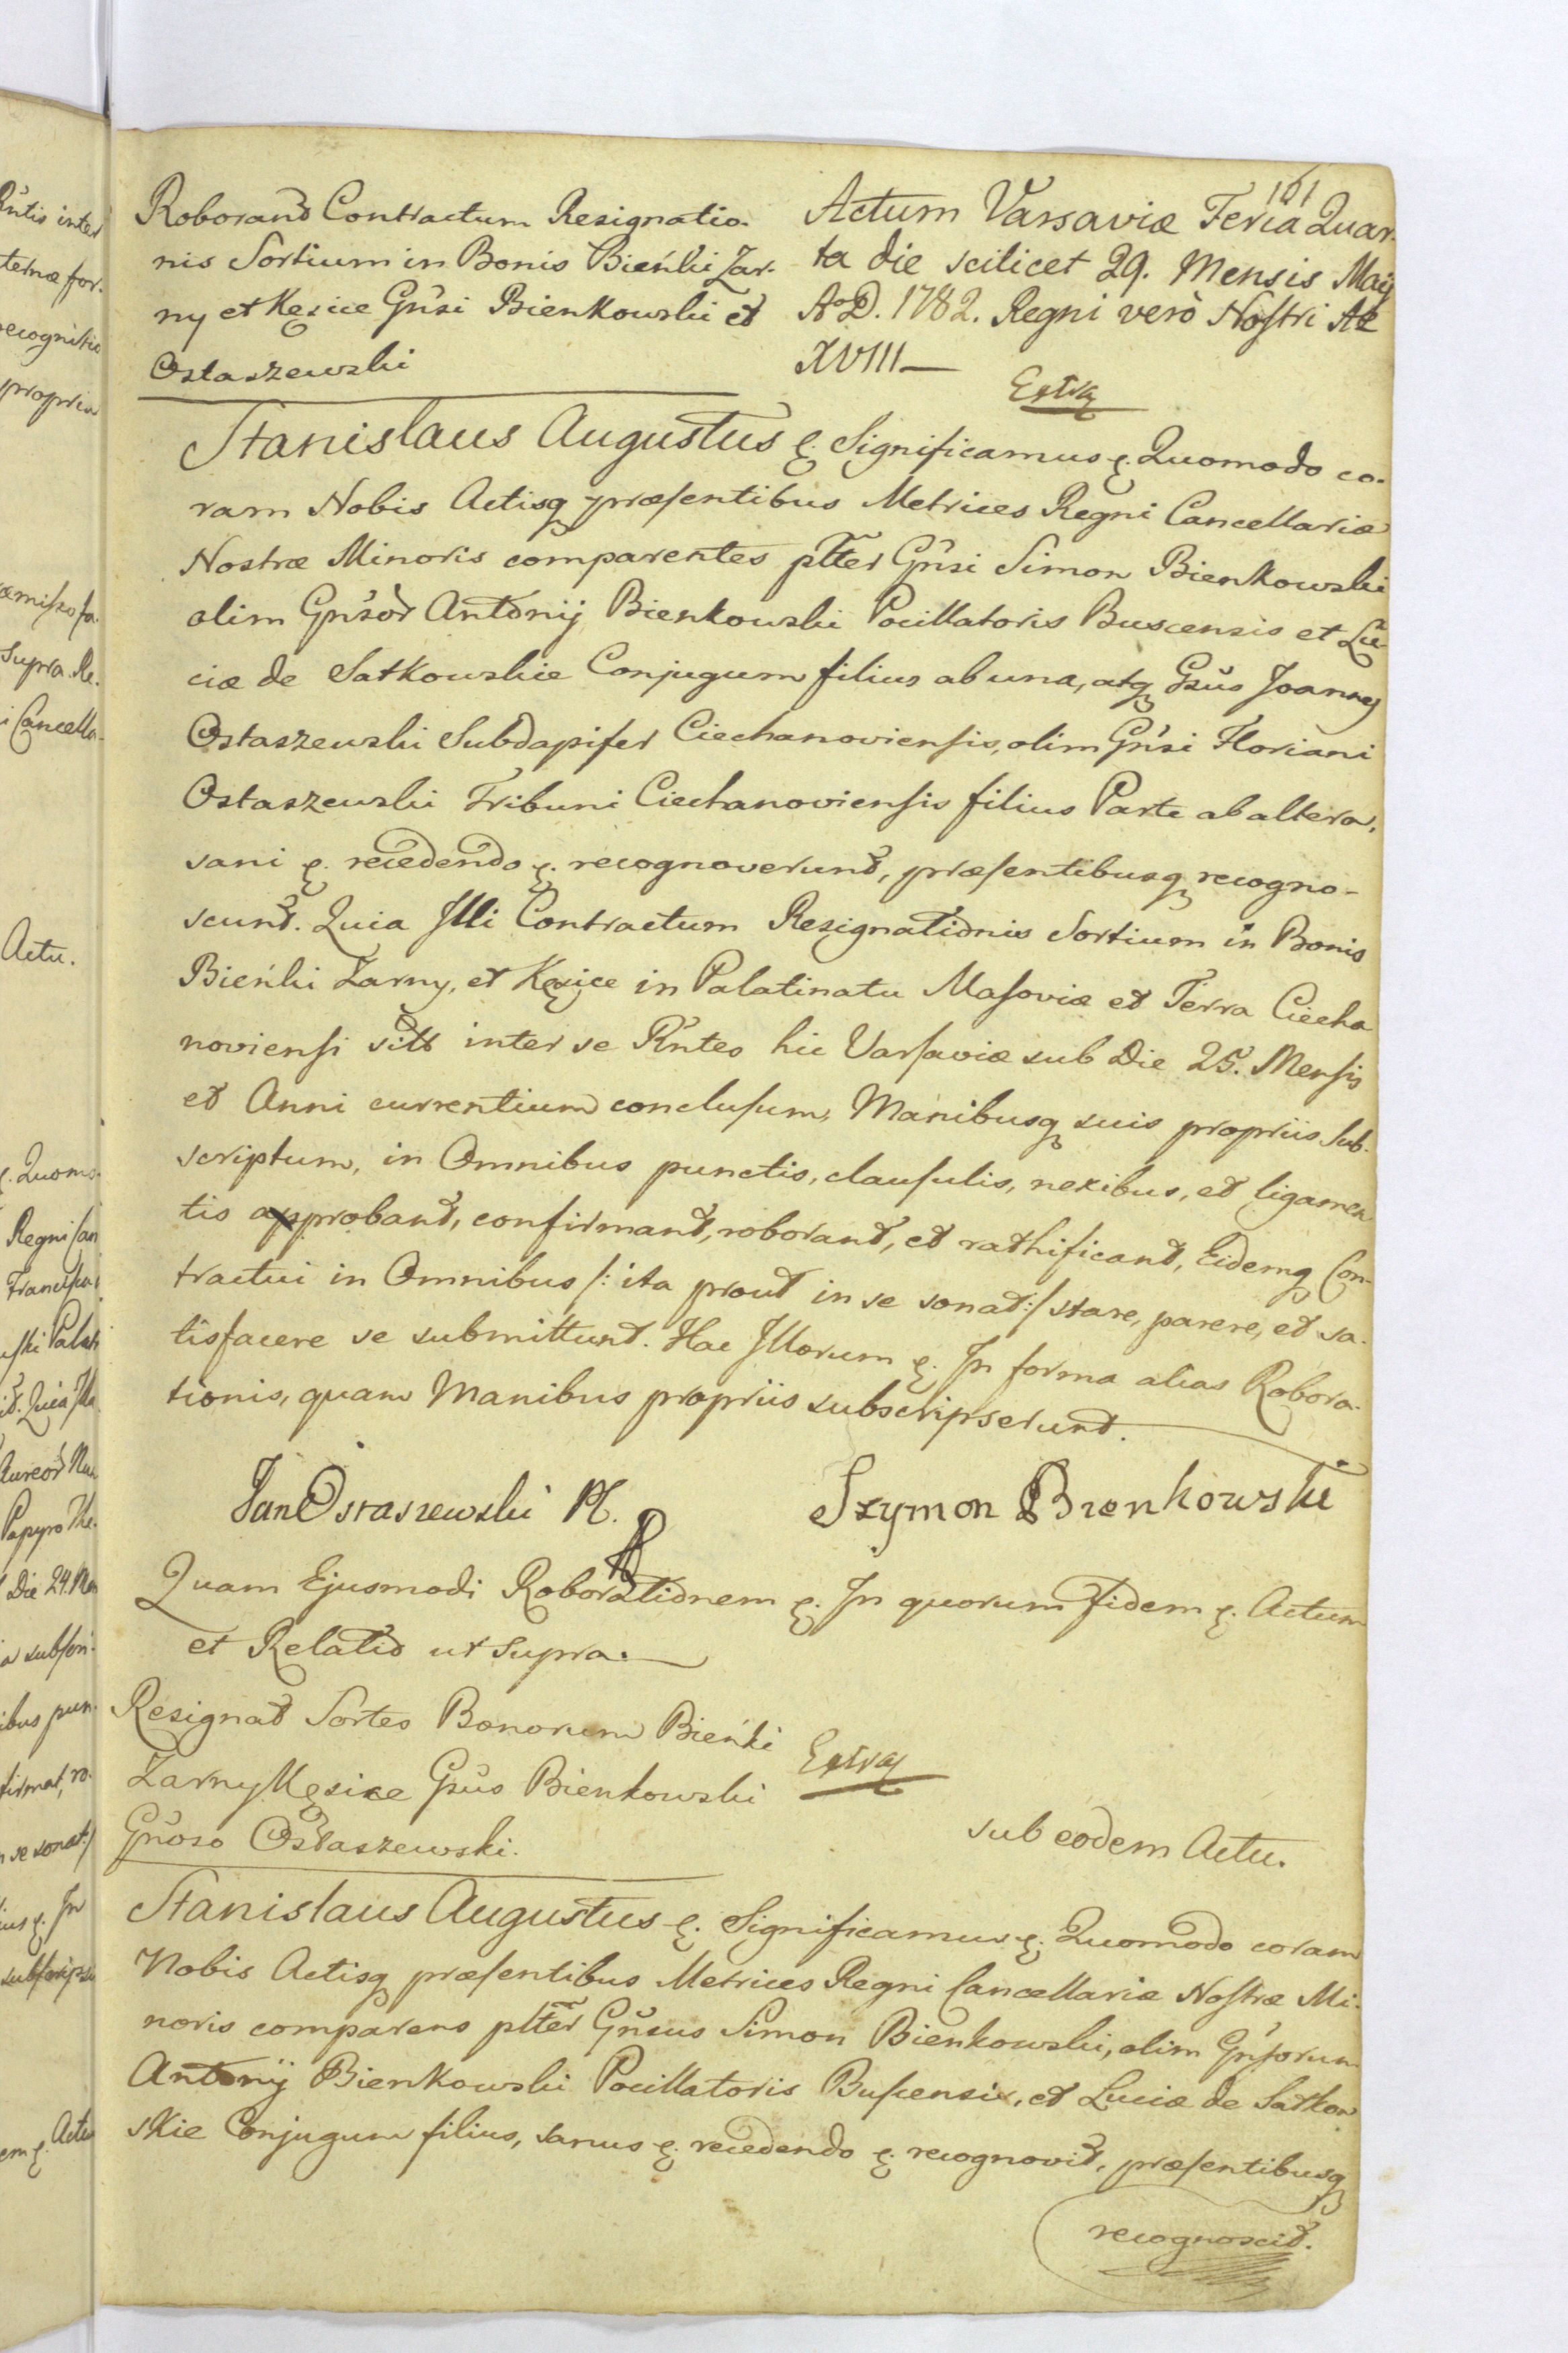 161
Roborand Contractum Resignatio-
nis Sortium in Bonis Bieńki Zar-
ny et Kęsice Gnsi Bienkowski et
Ostaszewski
Actum Varsaviæ Feria Quar-
ta die scilicet 29. Mensis Maij
AoD. 1782. Regni verò Nostri Ao
XVIII
Extra
Stanislaus Augustus &. Significamus &. Quomodo co-
ram Nobis Actisq præsentibus Metrices Regni Cancellariæ
Nostræ Minoris comparentes pltter Gnsi Simon Bienkowski
olim Gnsor Antonij Bienkowski Pocillatoris Buscensis et Lu-
ciæ de Satkowskie Conjugum filius ab una, atq Gsus Joannes
Ostaszewski Subdapifer Ciechanoviensis, olim Gnsi Floriani
Ostaszewski Tribuni Ciechanoviensis filius Parte ab altera,
sani &. recedendo &. recognoverunt, præsentibusq recogno-
scunt. Quia Illi Contractum Resignationis Sortium in Bonis
Bieńki Zarny, et Kęsice in Palatinatu Masoviæ et Terra Ciecha
noviensi sitt inter se Rntes hic Varsaviæ sub Die 25. Mensis
et Anni currentium conclusum, Manibusq suis propriis sub-
scriptum, in Omnibus punctis, clausulis, nexibus, et ligamen
tis approbant, confirmant, roborant, et rathificant, Eidemq Con-
tractui in Omnibus /: ita prout in se sonat :/ stare, parere, et sa-
tisfacere se submittunt. Hac Illorum &. In forma alias Robora-
tionis, quam Manibus propriis subscripserunt.
Jan Ostaszewski
Szymon Bienkowski
Quam Ejusmodi Roborationem &. In quorum Fidem &. Actum
et Relatio ut Supra.
Resignat Sortes Bonorum Bieńki
Zarny Kęsice Gsus Bienkowski
Gnoso Ostaszewski.
Extra
sub eodem Actu.
Stanislaus Augustus &. Significamus &. Quomodo coram
Nobis Actisq præsentibus Metrices Regni Cancellariæ Nostræ Mi-
noris comparens pltter Gnsus Simon Bienkowski, olim Gnsorum
Antonij Bienkowski Pocillatoris Buscensis, et Luciæ de Satkow
skie Conjugum filius, sanus &. recedendo &. recognovit, præsentibusq
recognoscit.